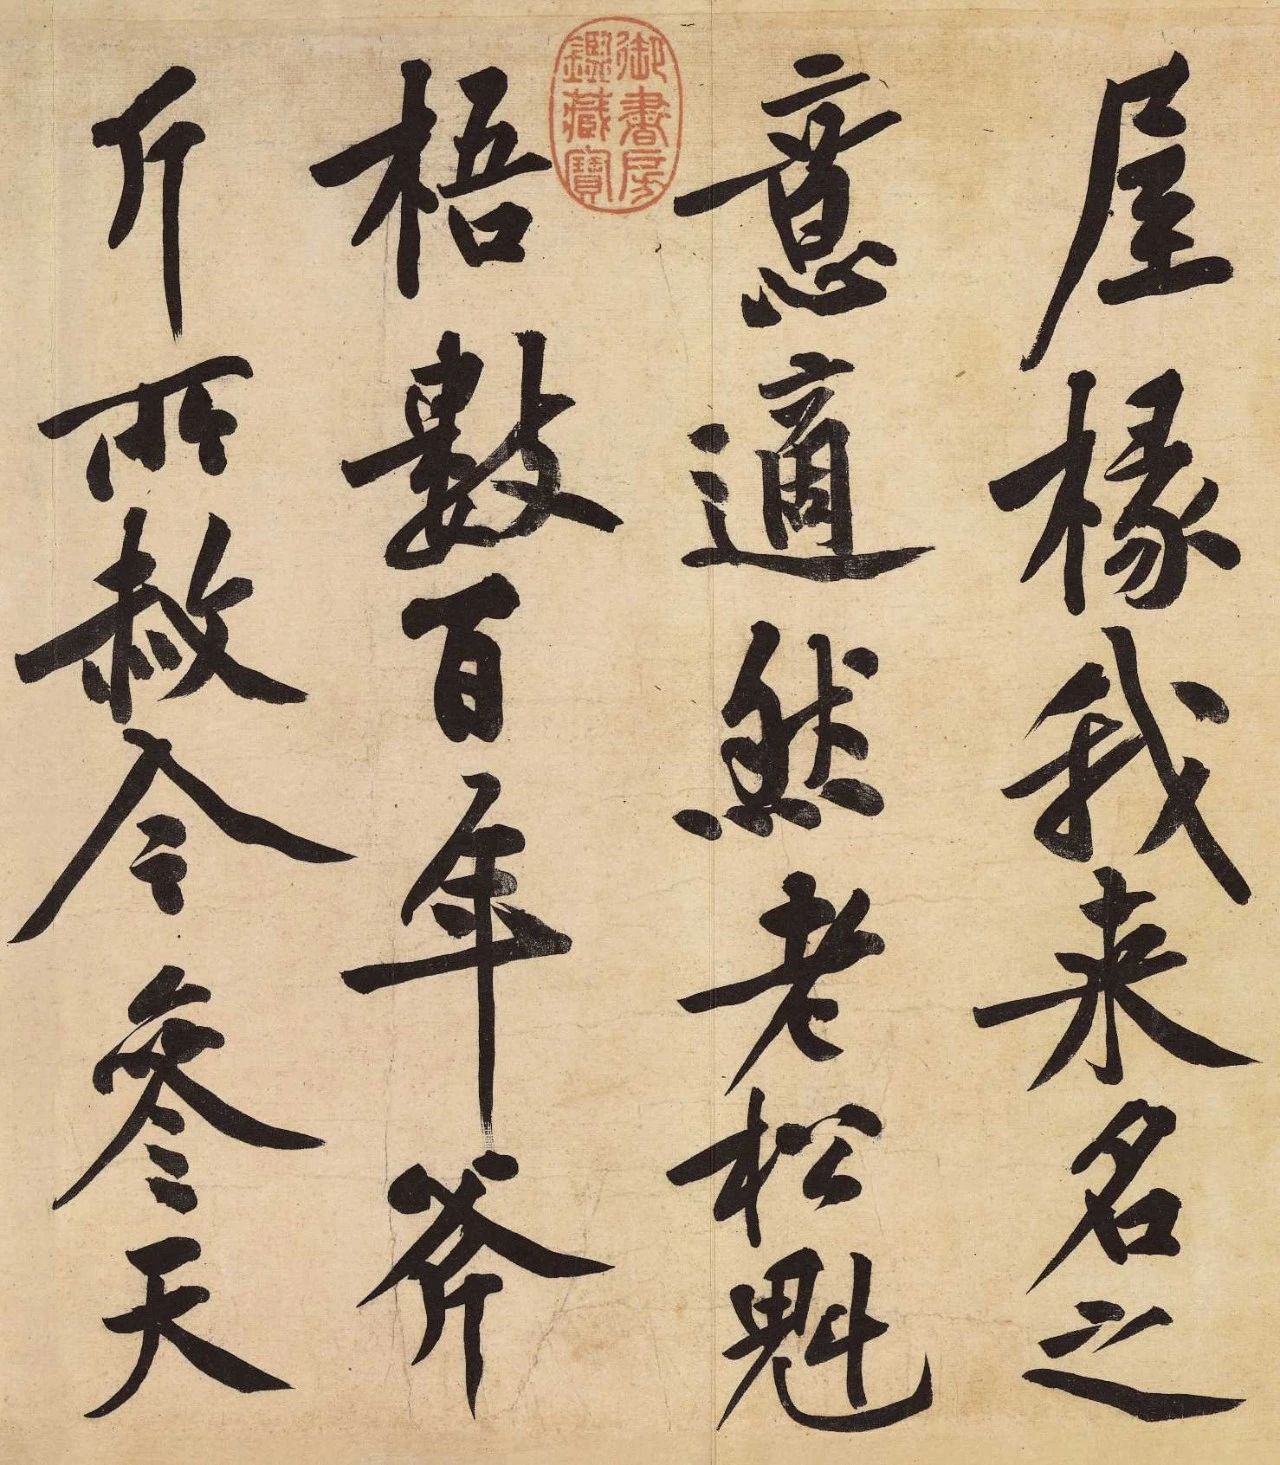 屋椽我来名之
意適然老松魁
梧數百年斧
斤所赦令參天
御書房
鑑藏寶